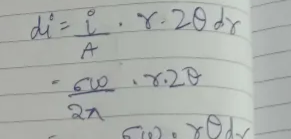 di = i/A · r · 2θ dr
= σω/2π · r · 2θ
σω · rθ dr